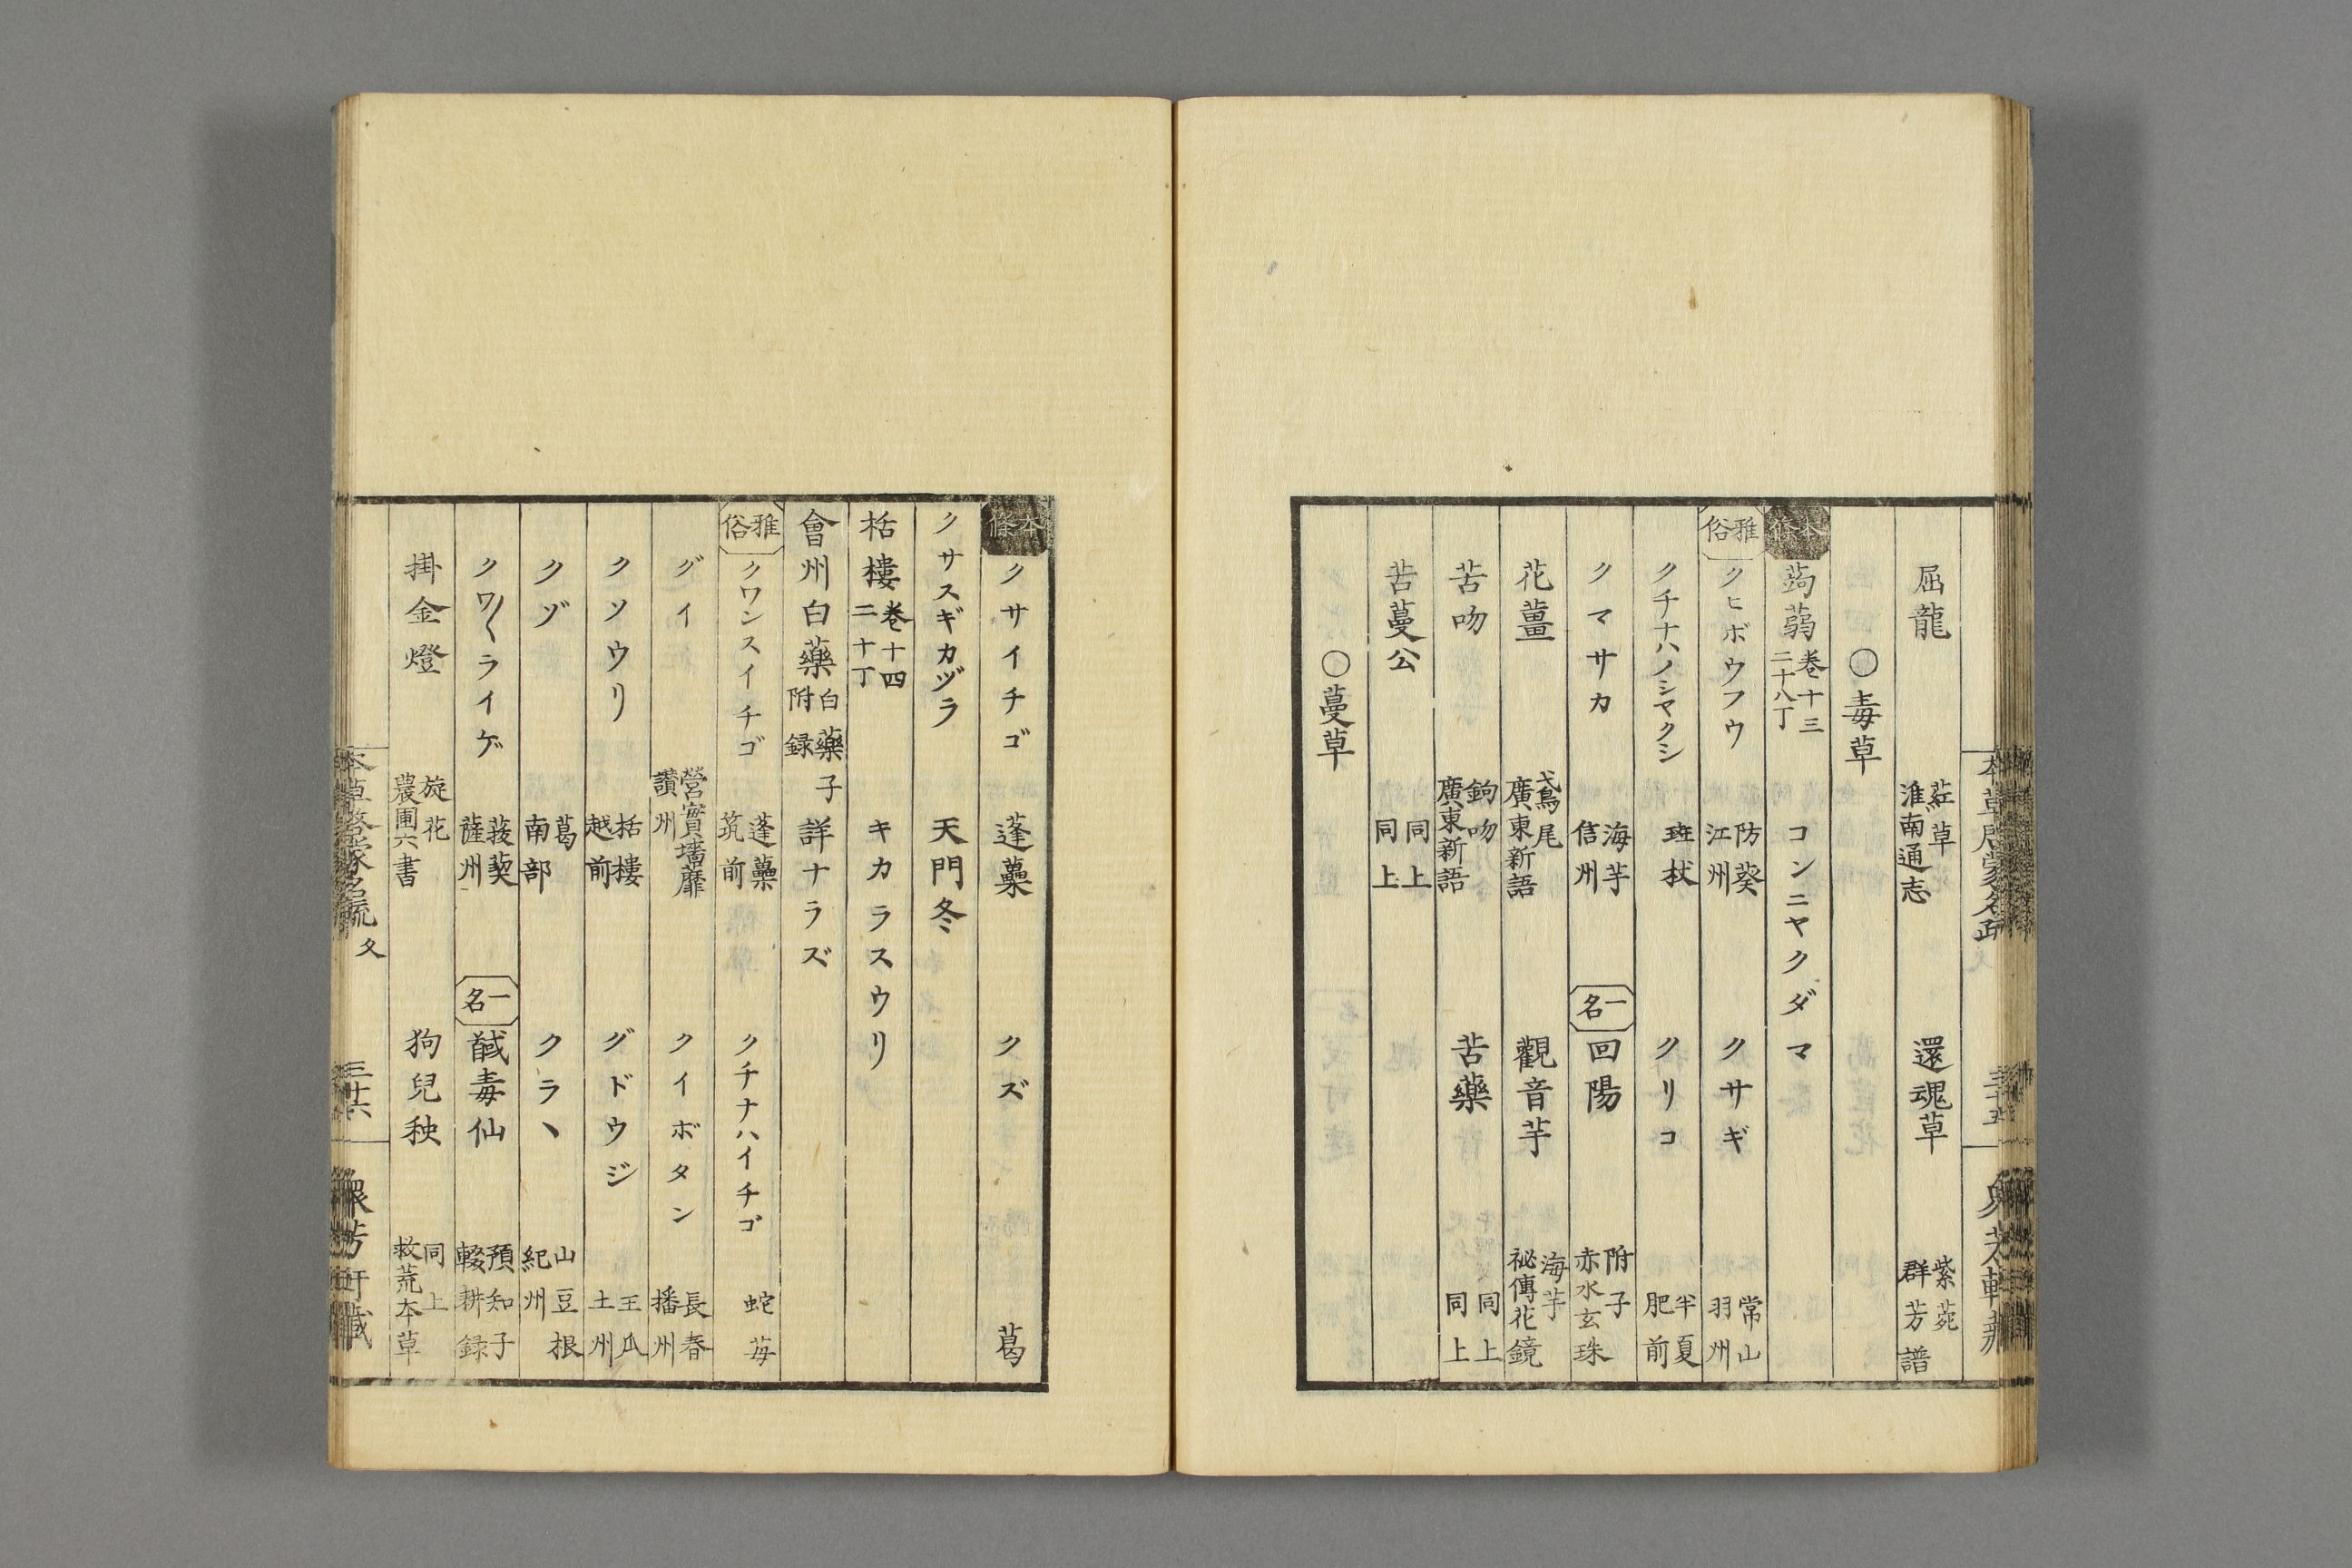 屈龍 葒草 淮南通志 還魂草 紫菀 群芳譜
〇毒草
本條 蒟蒻 卷十三 二十八丁 コンニヤクダマ
雅俗 クヒボウフウ 防葵 江州 クサギ 常山 羽州
クチナハノシヤクシ 斑杖 クリコ 半夏 肥前
クマサカ 海芋 信州 一名 回陽 附子 赤水玄珠
花薑 弋鳥尾 廣東新語 觀音芋 海芋 祕傳花鏡
苦吻 鉤吻 廣東新語 苦藥 同上 同上
苦蔓公 同上 同上
〇蔓草
本條 クサイチゴ 蓬虆 クズ 葛
クサスギカヅラ 天門冬
栝樓 卷十四 二十丁 キカラスウリ
會州白藥 白藥子 附録 詳ナラズ
雅俗 クワンスイチゴ 蓬虆 筑前 クチナハイチゴ 蛇苺
グイ 營實墻蘼 讃州 クイボタン 長春 播州
クソウリ 栝樓 越前 グドウジ 王瓜 土州
クゾ 葛 南部 クラヽ 山豆根 紀州
クワ〱ライゲ 菝葜 薩州 一名 馘毒仙 預知子 輟耕録
掛金燈 旋花 農圃六書 狗兒秧 同上 救荒本草
本草啓蒙名疏 久 三十六